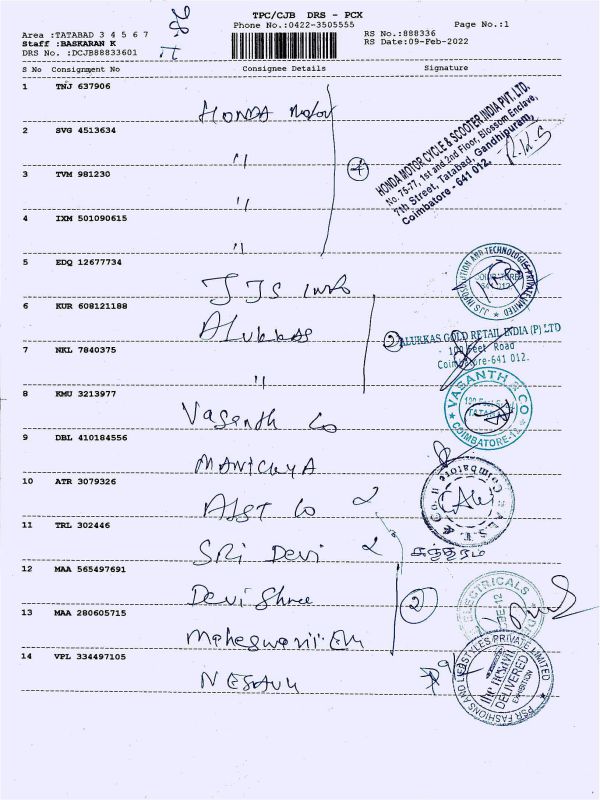 TPC/CJB DRS - PCX
Phone No.:0422-3505555
Page No.:1
Area :TATABAD 3 4 5 6 7
RS No.:888336
Staff :BASKARAN K
RS Date:09-Feb-2022
DRS No. :DCJB88833601
S No Consignment No Consignee Details Signature
1 TNJ 637906
HONDA Motor
2 SVG 4513634
"
3 TVM 981230
"
4 IXM 501090615
"
4
HONDA MOTOR CYCLE & SCOOTER INDIA PVT. LTD.
No. 75-77, 1st and 2nd Floor, Blossom Enclave,
7th Street, Tatabad, Gandhipuram,
Coimbatore - 641 012.
5 EDQ 12677734
JJS Info
JJS INFORMATION AND TECHNOLOGIES PRIVATE LIMITED
6 KUR 608121188
ALukkas
7 NKL 7840375
"
2
ALUKKAS GOLD RETAIL INDIA (P) LTD
- 100 Feet Road
Coimbatore-641 012.
8 KMU 3213977
Vasanth Co
VASANTH & CO
TATABAD
COIMBATORE-12
9 DBL 410184556
MANICKYA
10 ATR 3079326
ALST Co
Coimbatore
11 TRL 302446
SRI Devi
12 MAA 565497691
Devi Shree
13 MAA 280605715
Maheswari Em
2
ELECTRICALS
14 VPL 334497105
NESAVU
PSR FASHIONS AND LIFESTYLES PRIVATE LIMITED
DELIVERED
EXHIBITION